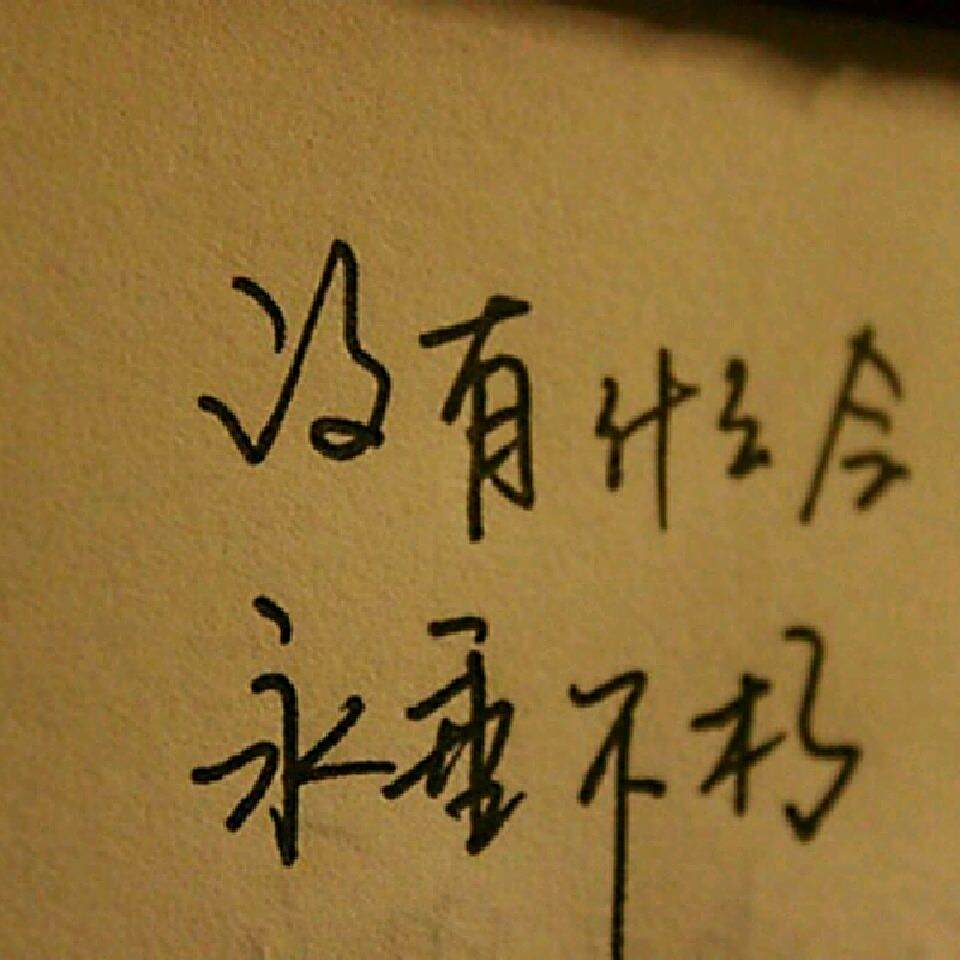 没有什么会
永垂不朽